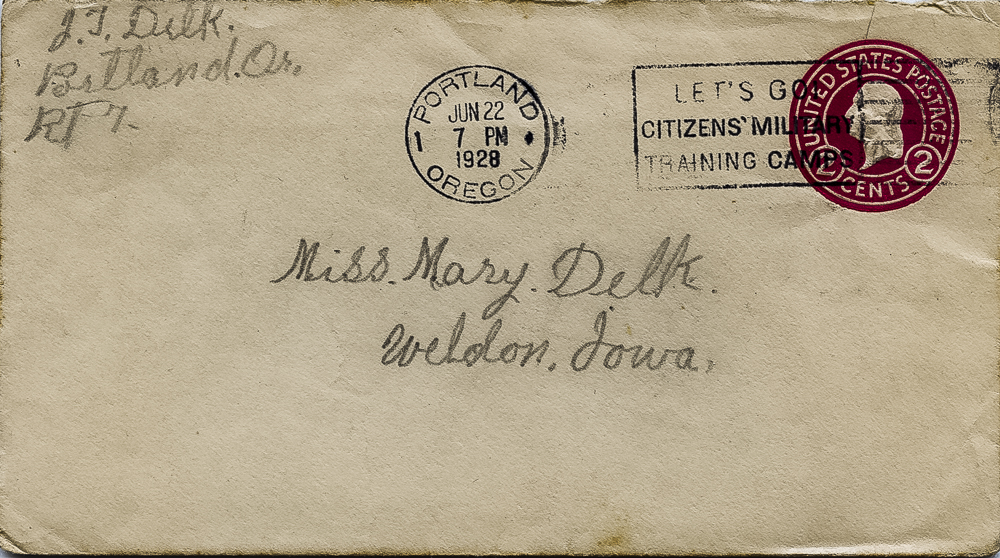 J. T. Delk.
Portland. Or.
RT 7.
PORTLAND
JUN 22
7 PM
1928
OREGON
1
LET'S GO!
CITIZENS' MILITARY
TRAINING CAMPS
UNITED STATES POSTAGE
2 CENTS 2
Miss. Mary. Delk.
Weldon, Iowa.